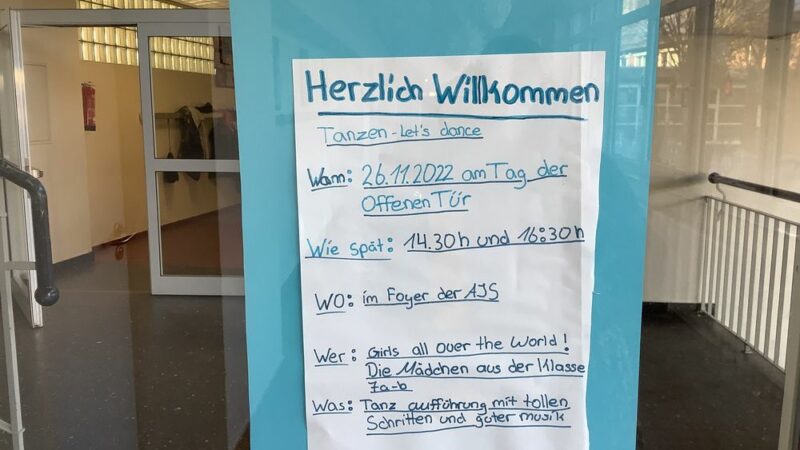 Herzlich Willkommen
Tanzen - Let's dance
Wann: 26.11.2022 am Tag der
Offenen Tür
Wie spät: 14.30h und 16:30h
WO: im Foyer der AJS
Wer: Girls all over the World!
Die Mädchen aus der Klasse
7a-b
Was: Tanz aufführung mit tollen
Schritten und guter musik